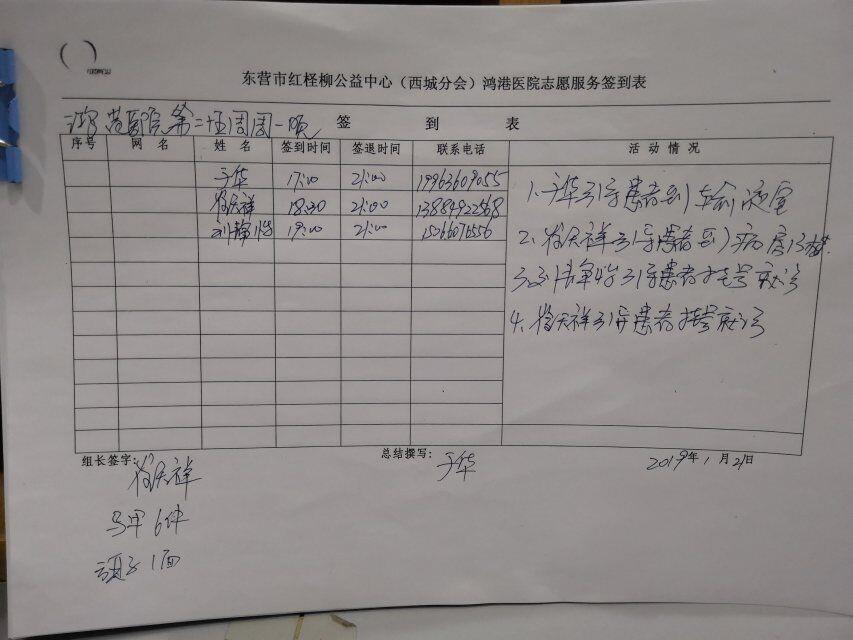 东营市红柽柳公益中心（西城分会）鸿港医院志愿服务签到表
鸿港医院第二十五周周一晚
签 到 表
序号 网 名 姓 名 签到时间 签退时间 联系电话 活 动 情 况
于华 17:00 21:00 19963609055
天祥 18:30 21:00 13884922568
刘静怡 19:00 21:00
1.于华引导患者到输液室
2.天祥引导患者到病房
3.刘静怡引导患者挂号就诊
4.天祥引导患者挂号就诊
组长签字: 天祥 总结撰写: 于华 2019年1月21日
马甲6件
旗子1面